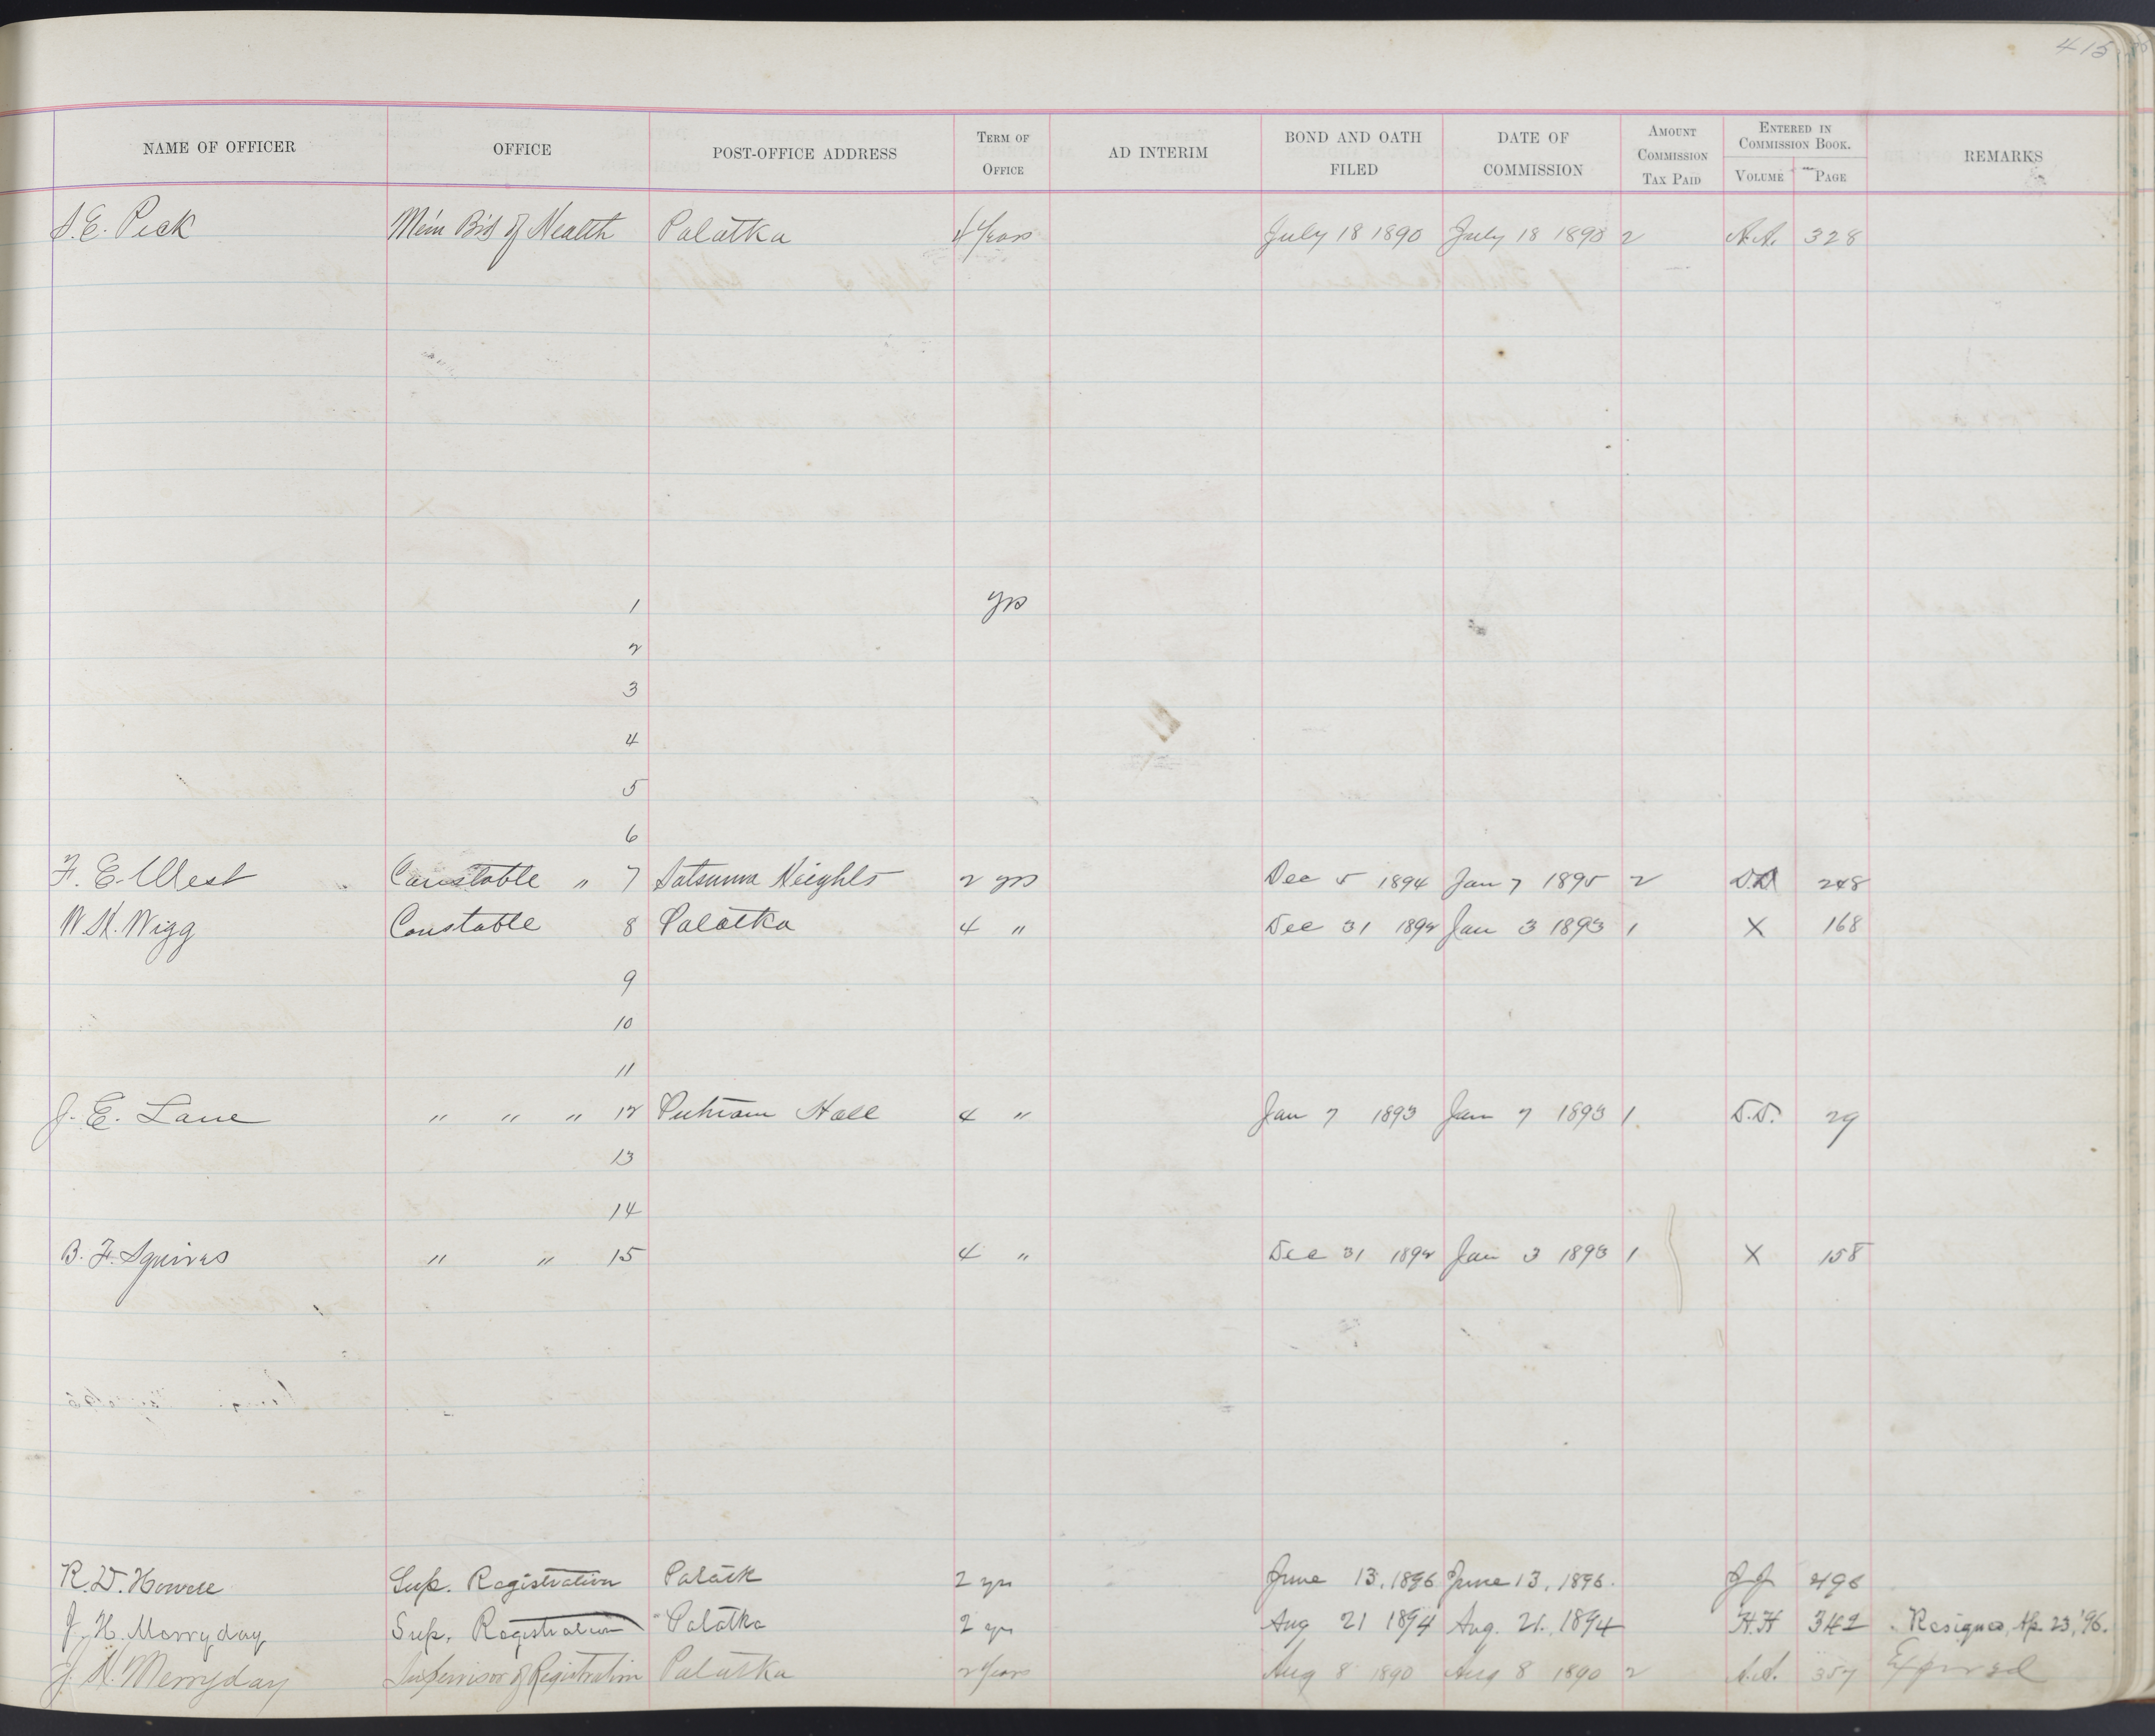 415
NAME OF OFFICER OFFICE POST-OFFICE ADDRESS TERM OF OFFICE AD INTERIM BOND AND OATH FILED DATE OF COMMISSION AMOUNT COMMISSION TAX PAID ENTERED IN COMMISSION BOOK. VOLUME PAGE REMARKS
S. E. Peck Mem Bd of Health Palatka 4 Years July 18 1890 July 18 1890 2 A.A. 328
1 yrs
2
3
4
5
6
F. E. West Constable " 7 Satsuma Heights 2 yrs Dec 5 1894 Jan 7 1895 2 D.D 248
W. H. Wigg Constable 8 Palatka 4 " Dec 31 1892 Jan 3 1893 1 X 168
9
10
11
J. E. Lane " " " 12 Putnam Hall 4 " Jan 7 1893 Jan 7 1893 1. D.D. 29
13
14
B. F. Squires " " 15 4 " Dec 31 1892 Jan 3 1893 1 X 158
R. D. Howell Sup. Registration Palatk 2 yrs June 13, 1896 June 13, 1896. JJ 496
J. H. Merryday Sup. Registration Palatka 2 yrs Aug 21 1894 Aug. 21, 1894 H.H 342 Resigned, Ap. 23, '96.
J. H. Merryday Supervisor of Registration Palatka 2 Years Aug 8 1890 Aug 8 1890 2 A.A. 357 Expired